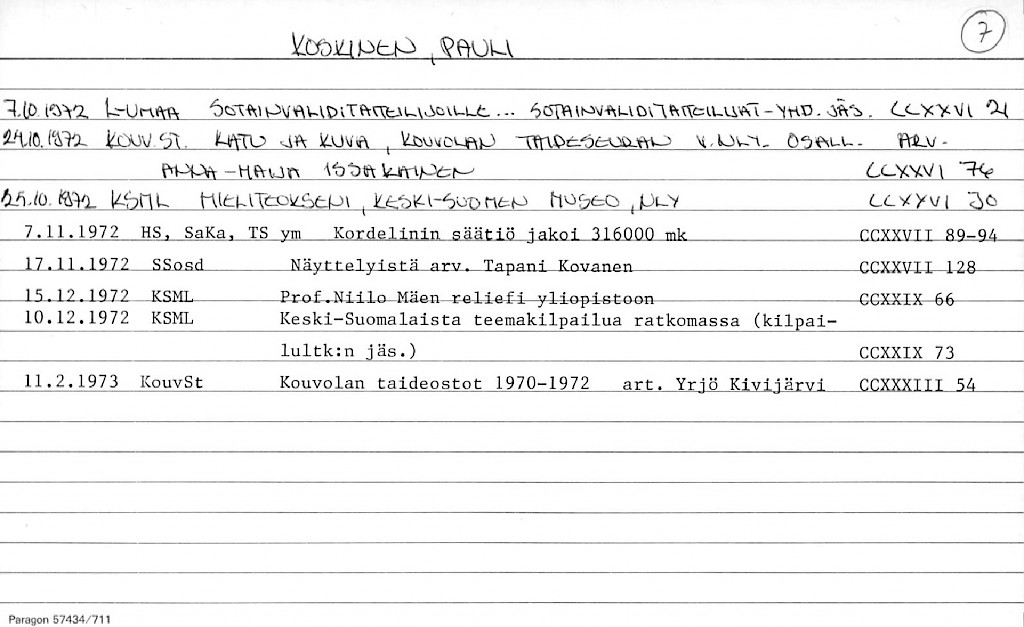 KOSKINEN, PAULI 7
7.10.1972 L-UMAA SOTAINVALIDITAITEILIJOILLE... SOTAINVALIDITAITEILIJAT-YHD. JÄS. CCXXVI 21
24.10.1972 KOUV.ST. KATU JA KUVA, KOUVOLAN TAIDESEURAN V.NLY. OSALL. ARV-
ANNA-MAIJA ISSAKAINEN CCXXVI 74
25.10.1972 KSML MIELITEOKSENI, KESKI-SUOMEN MUSEO, NLY CCXXVI 30
7.11.1972 HS, SaKa, TS ym Kordelinin säätiö jakoi 316000 mk CCXXVII 89-94
17.11.1972 SSosd Näyttelyistä arv. Tapani Kovanen CCXXVII 128
15.12.1972 KSML Prof.Niilo Mäen reliefi yliopistoon CCXXIX 66
10.12.1972 KSML Keski-Suomalaista teemakilpailua ratkomassa (kilpai-
lultk:n jäs.) CCXXIX 73
11.2.1973 KouvSt Kouvolan taideostot 1970-1972 art. Yrjö Kivijärvi CCXXXIII 54
Paragon 57434/711